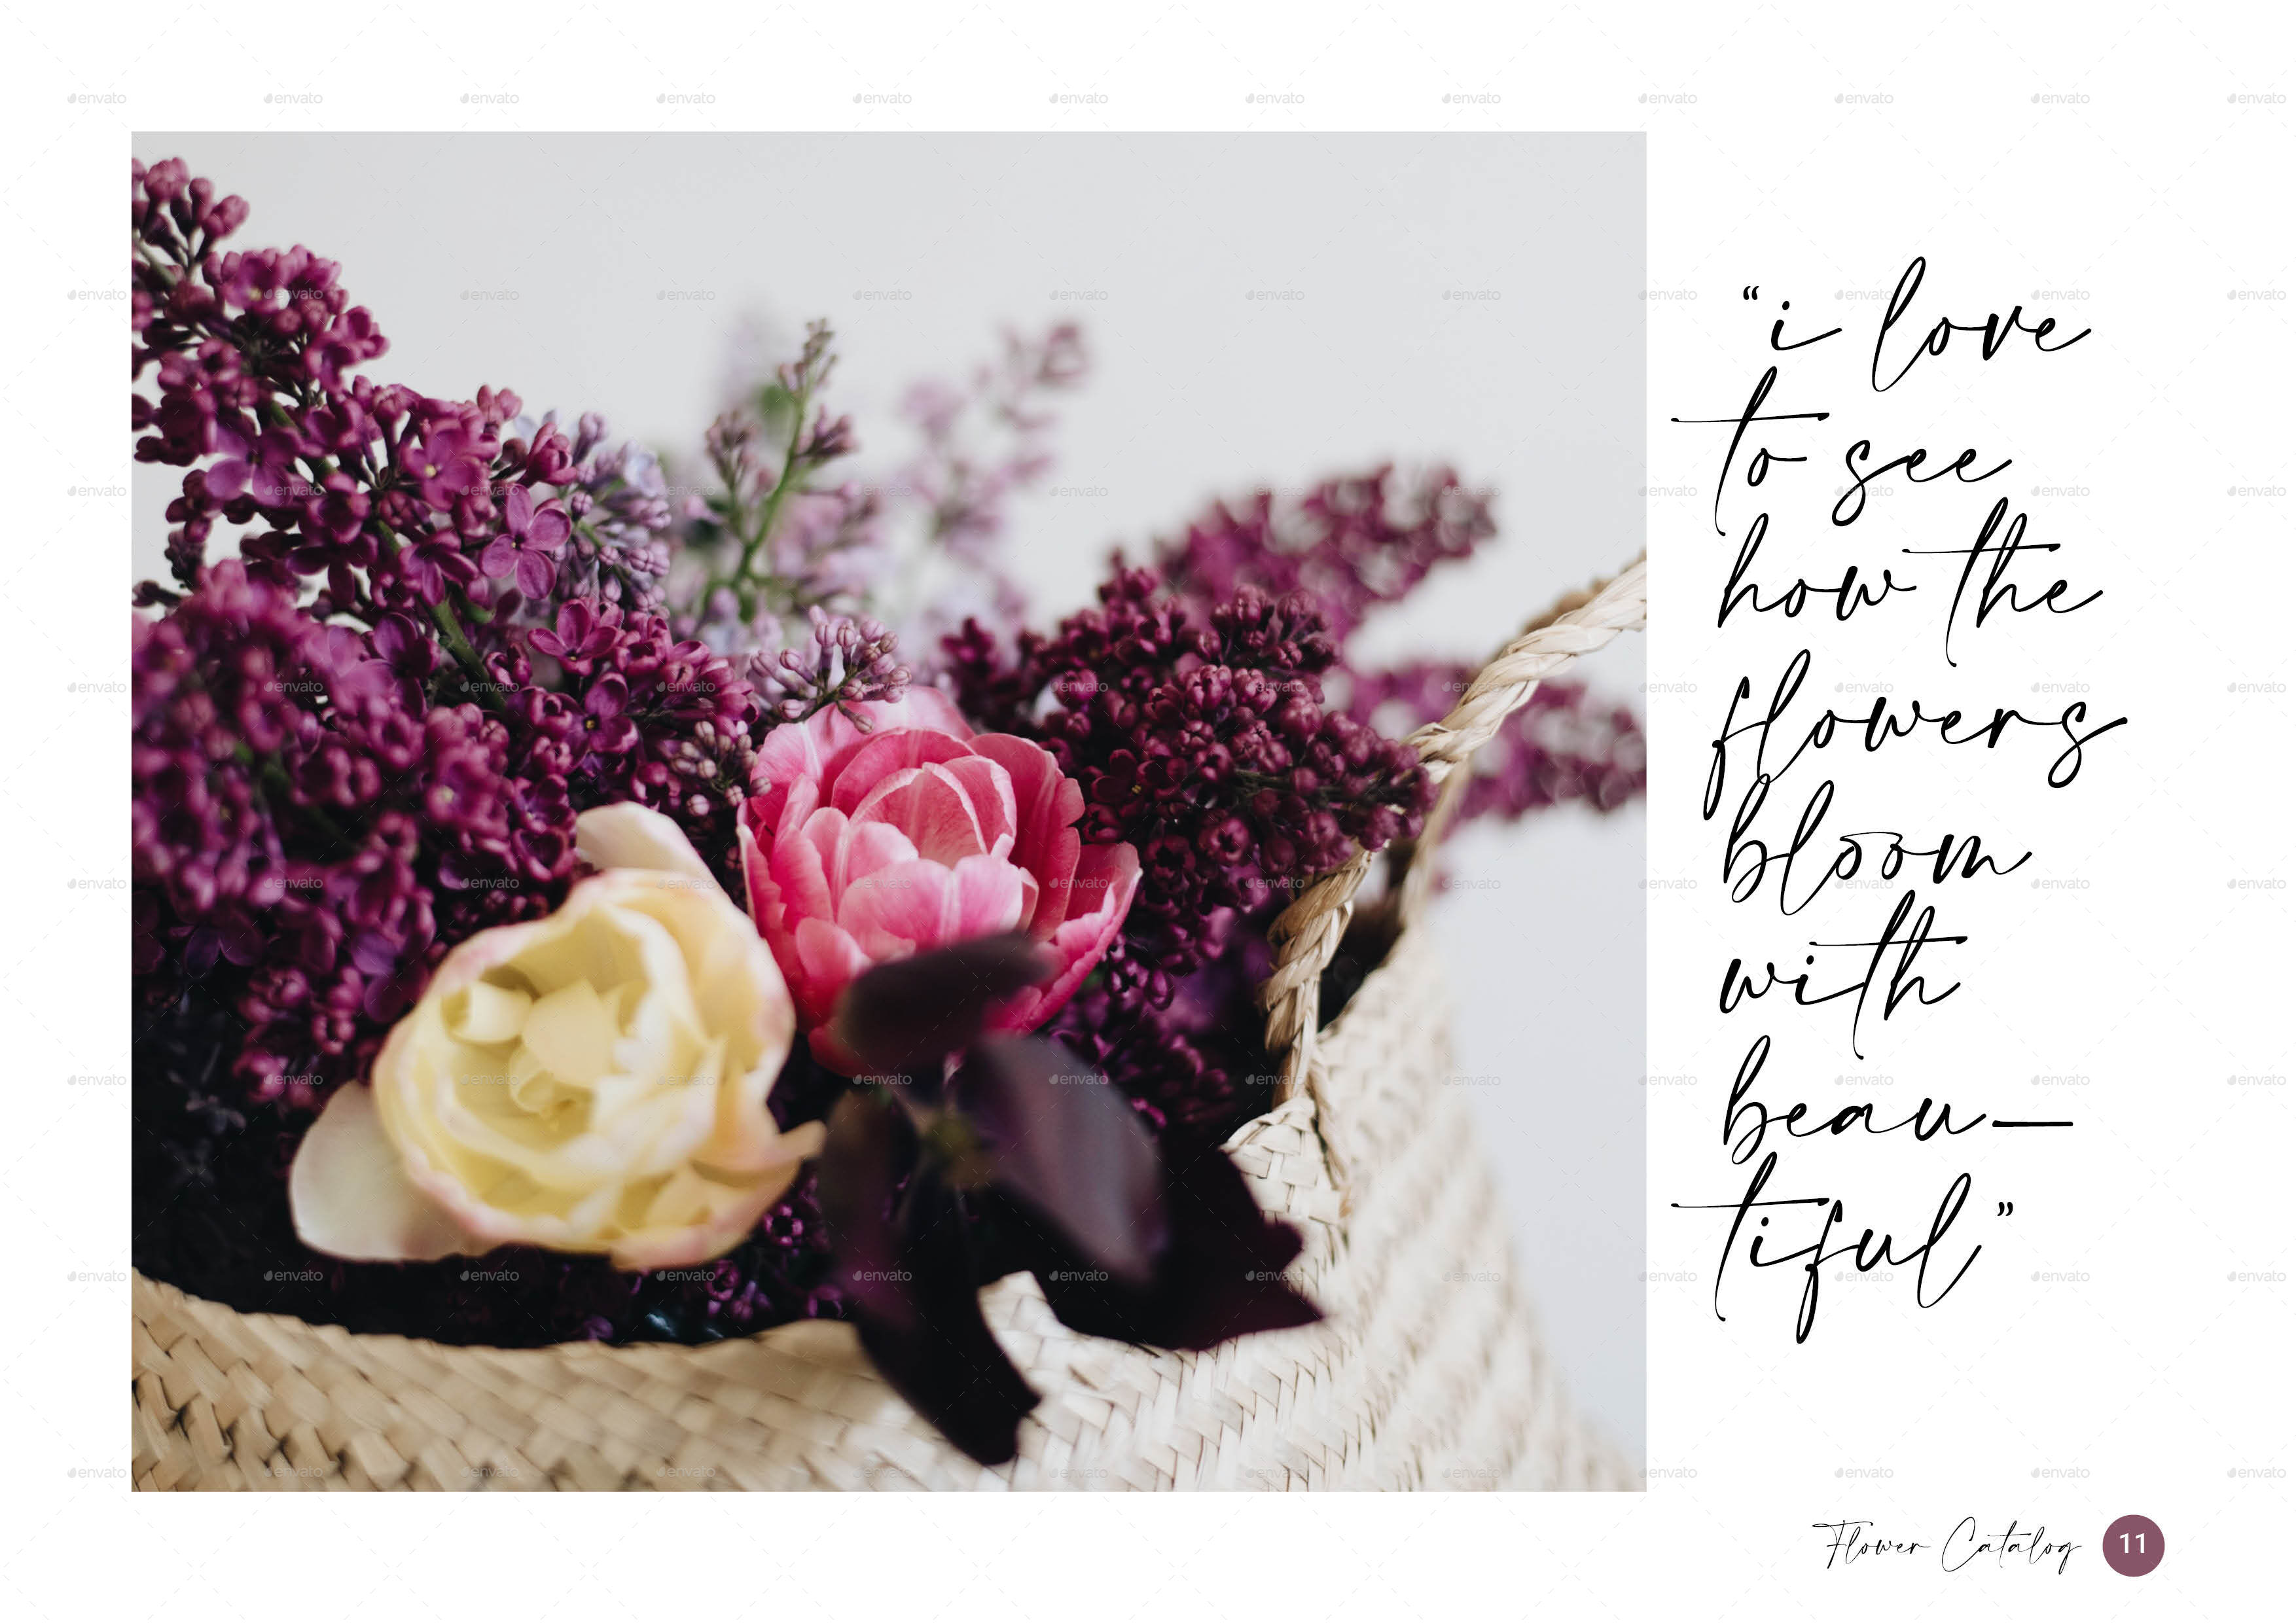 “i love
to see
how the
flowers
bloom
with
beau-
tiful”
Flower Catalog 11
envato